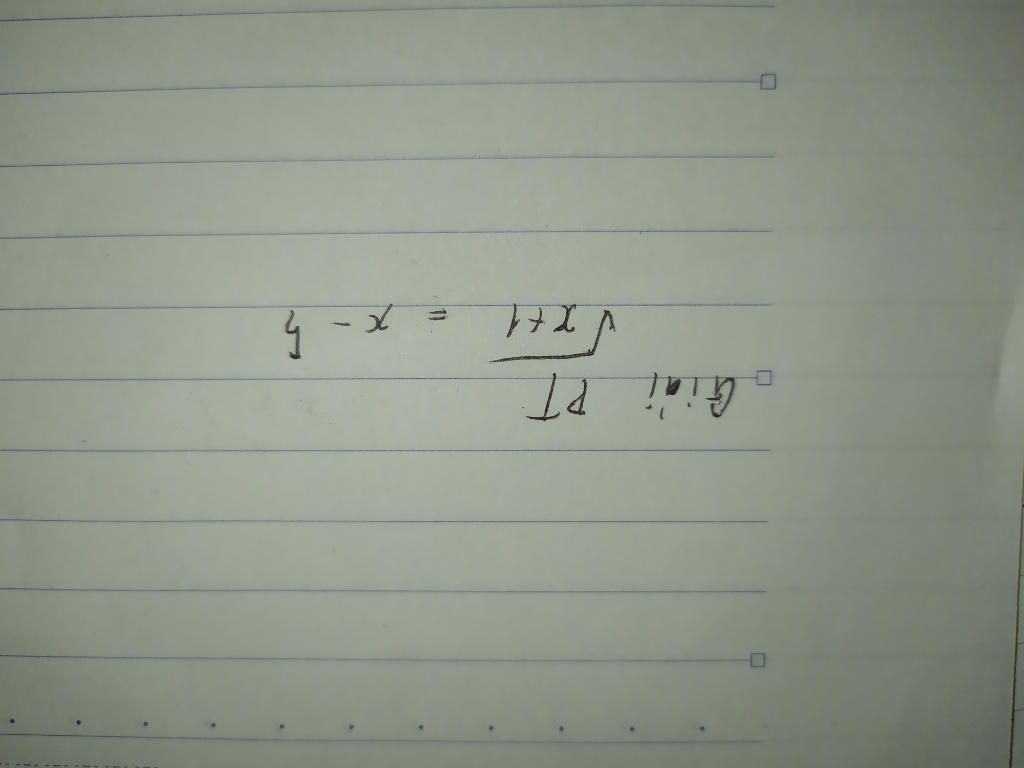 Giải PT
√x+1 = x - 5